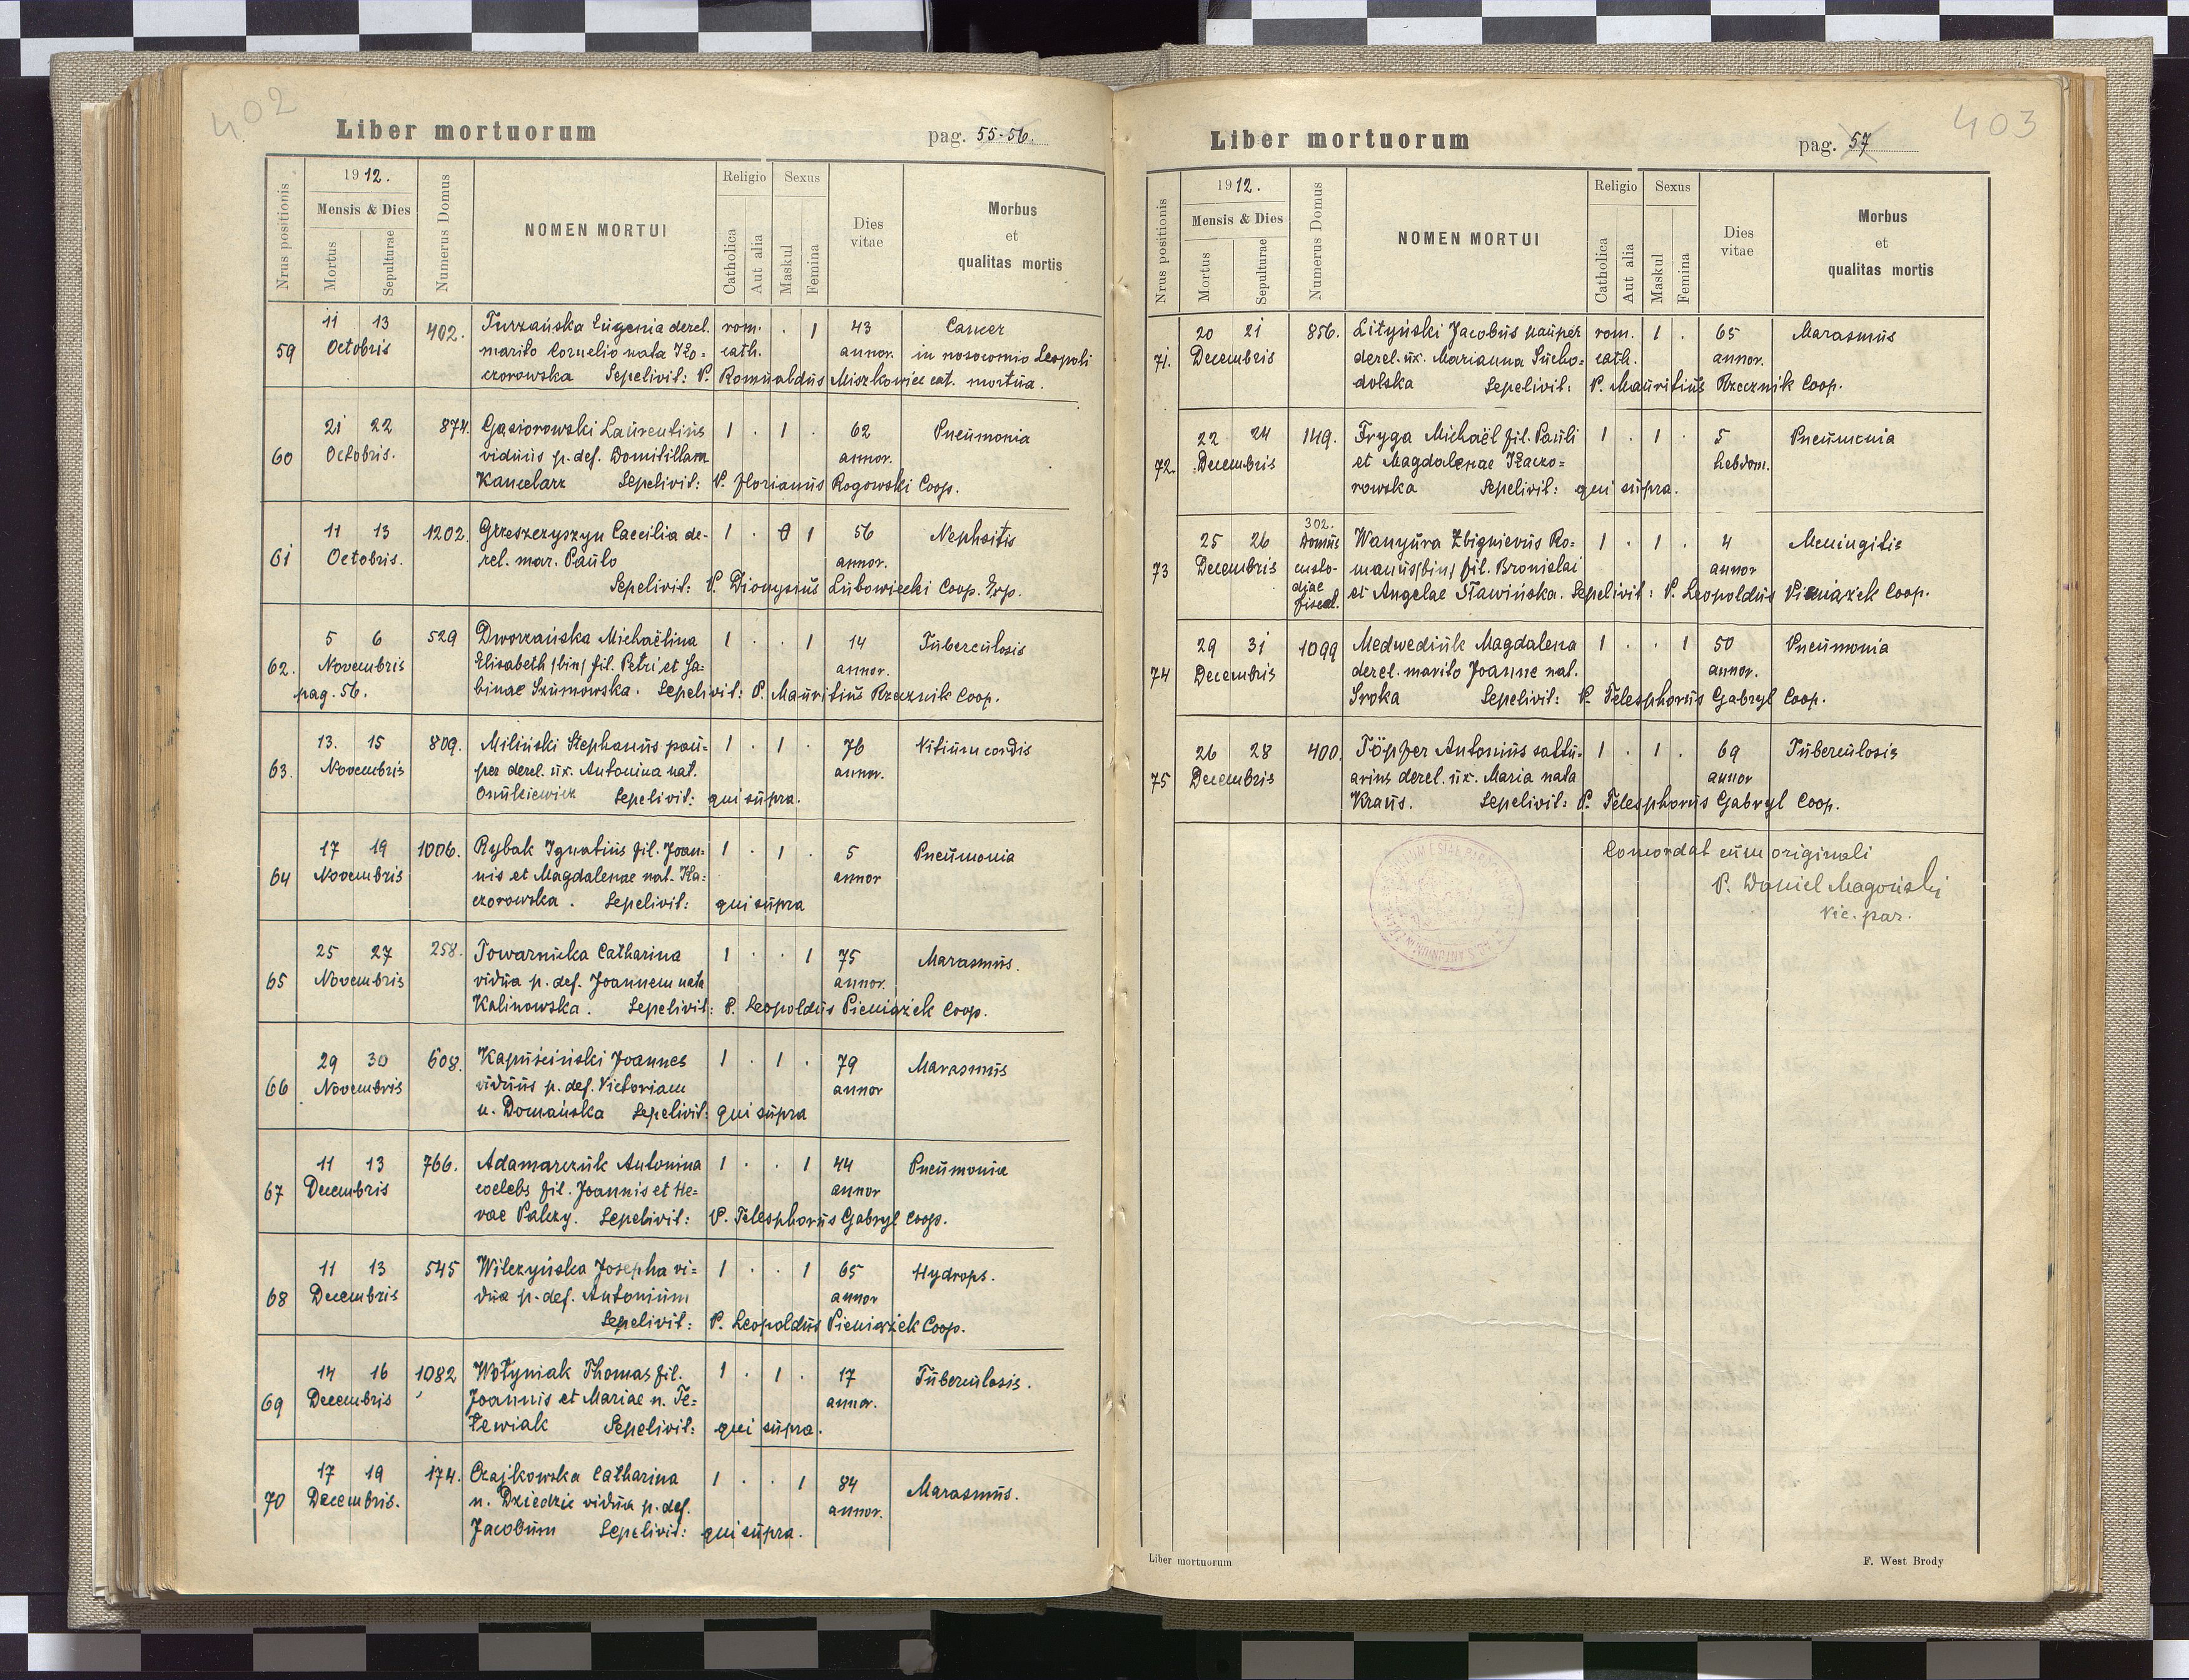 402
Liber mortuorum
pag. 55-56.
Nrus positionis
1912.
Mensis & Dies
Mortus
Sepulturae
Numerus Domus
NOMEN MORTUI
Religio
Catholica
Aut alia
Sexus
Maskul
Femina
Dies
vitae
Morbus
et
qualitas mortis
11 13 402. Turzańska Eugenia derel. rom. . 1 43 Cancer
59 Octobris marito Cornelio nata Ko= cath. annor. in nosocomio Leopoli
czorowska Sepelivit: P. Romualdus Miszkowicz cat. mortua.
21 22 874. Gąsiorowski Laurentius 1 . 1 . 62 Pneumonia
60 Octobris. viduus p. def. Domitillam annor.
Kancelarz Sepelivit: P. Florianus Rogowski Coop.
11 13 1202. Grzeszczyszyn Caecilia de- 1 . 0 1 56 Nephritis
61 Octobris. rel. mar. Paulo annor.
Sepelivit: P. Dionysius Lubowiecki Coop. Exp.
5 6 529 Dworzańska Michaëlina 1 . . 1 14 Tuberculosis
62. Novembris Elisabeth /bin/ fil. Petri et Sa= annor.
pag. 56. binae Szumowska. Sepelivit: P. Mauritius Rzeznik Coop.
13. 15 809. Miliński Stephanus pau= 1 . 1 . 76 Vitium cordis
63. Novembris per derel. ux. Antonina nat. annor.
Onulkiewicz Sepelivit: qui supra.
17 19 1006. Rybak Ignatius fil. Joan= 1 . 1 . 5 Pneumonia
64 Novembris nis et Magdalenae nat. Ka= annor
czorowska. Sepelivit: qui supra
25 27 258. Towarnicka Catharina 1 . . 1 75 Marasmus.
65 Novembris vidua p. def. Joannem nata annor.
Kalinowska. Sepelivit: P. Leopoldus Pieniążek Coop.
29 30 608. Kapuściński Joannes 1 . 1 . 79 Marasmus
66 Novembris viduus p. def. Victoriam annor
n. Domańska Sepelivit: qui supra
11 13 766. Adamarczuk Antonina 1 . . 1 44 Pneumonia
67 Decembris coelebs fil. Joannis et He= annor
vae Palczy. Sepelivit: P. Telesphorus Gabryl Coop.
11 13 545 Wilczyńska Josepha vi= 1 . . 1 65 Hydrops.
68 Decembris dua p. def. Antonium annor
Sepelivit: P. Leopoldus Pieniążek Coop.
14 16 1082 Wołyniak Thomas fil. 1 . 1 . 17 Tuberculosis.
69 Decembris Joannis et Mariae n. Te= annor.
łewiak Sepelivit: qui supra.
17 19 174. Czajkowska Catharina 1 . . 1 84 Marasmus.
70 Decembris. n. Dziedzic vidua p. def. annor.
Jacobum Sepelivit: qui supra.
403
Liber mortuorum
pag. 57
Nrus positionis
1912.
Mensis & Dies
Mortus
Sepulturae
Numerus Domus
NOMEN MORTUI
Religio
Catholica
Aut alia
Sexus
Maskul
Femina
Dies
vitae
Morbus
et
qualitas mortis
20 21 856. Lityński Jacobus pauper rom. 1 . 65 Marasmus
71. Decembris derel. ux. Marianna Sucho= cath. annor.
dolska Sepelivit: P. Mauritius Rzeznik Coop.
22 24 149. Fryga Michaël fil. Pauli 1 . 1 . 5 Pneumonia
72. Decembris et Magdalenae Kaczo= hebdom.
rowska Sepelivit: qui supra.
302.
25 26 Domus Wanyura Zbignievus Ro= 1 . 1 . 4 Meningitis
73 Decembris custo- manus /bin/ fil. Bronislai annor
diae et Angelae Sławińska. Sepelivit: P. Leopoldus Pieniążek Coop.
fiscal.
29 31 1099 Medwediuk Magdalena 1 . . 1 50 Pneumonia
74 Decembris derel. marito Joanne nat. annor.
Sroka Sepelivit: P. Telesphorus Gabryl Coop.
26 28 400. Töpfer Antonius saltu- 1 . 1 . 69 Tuberculosis
75 Decembris arius derel. ux. Maria nata annor
Kraus. Sepelivit: P. Telesphorus Gabryl Coop.
Concordat cum originali
P. Daniel Magoński
Vic. par.
Liber mortuorum
F. West Brody